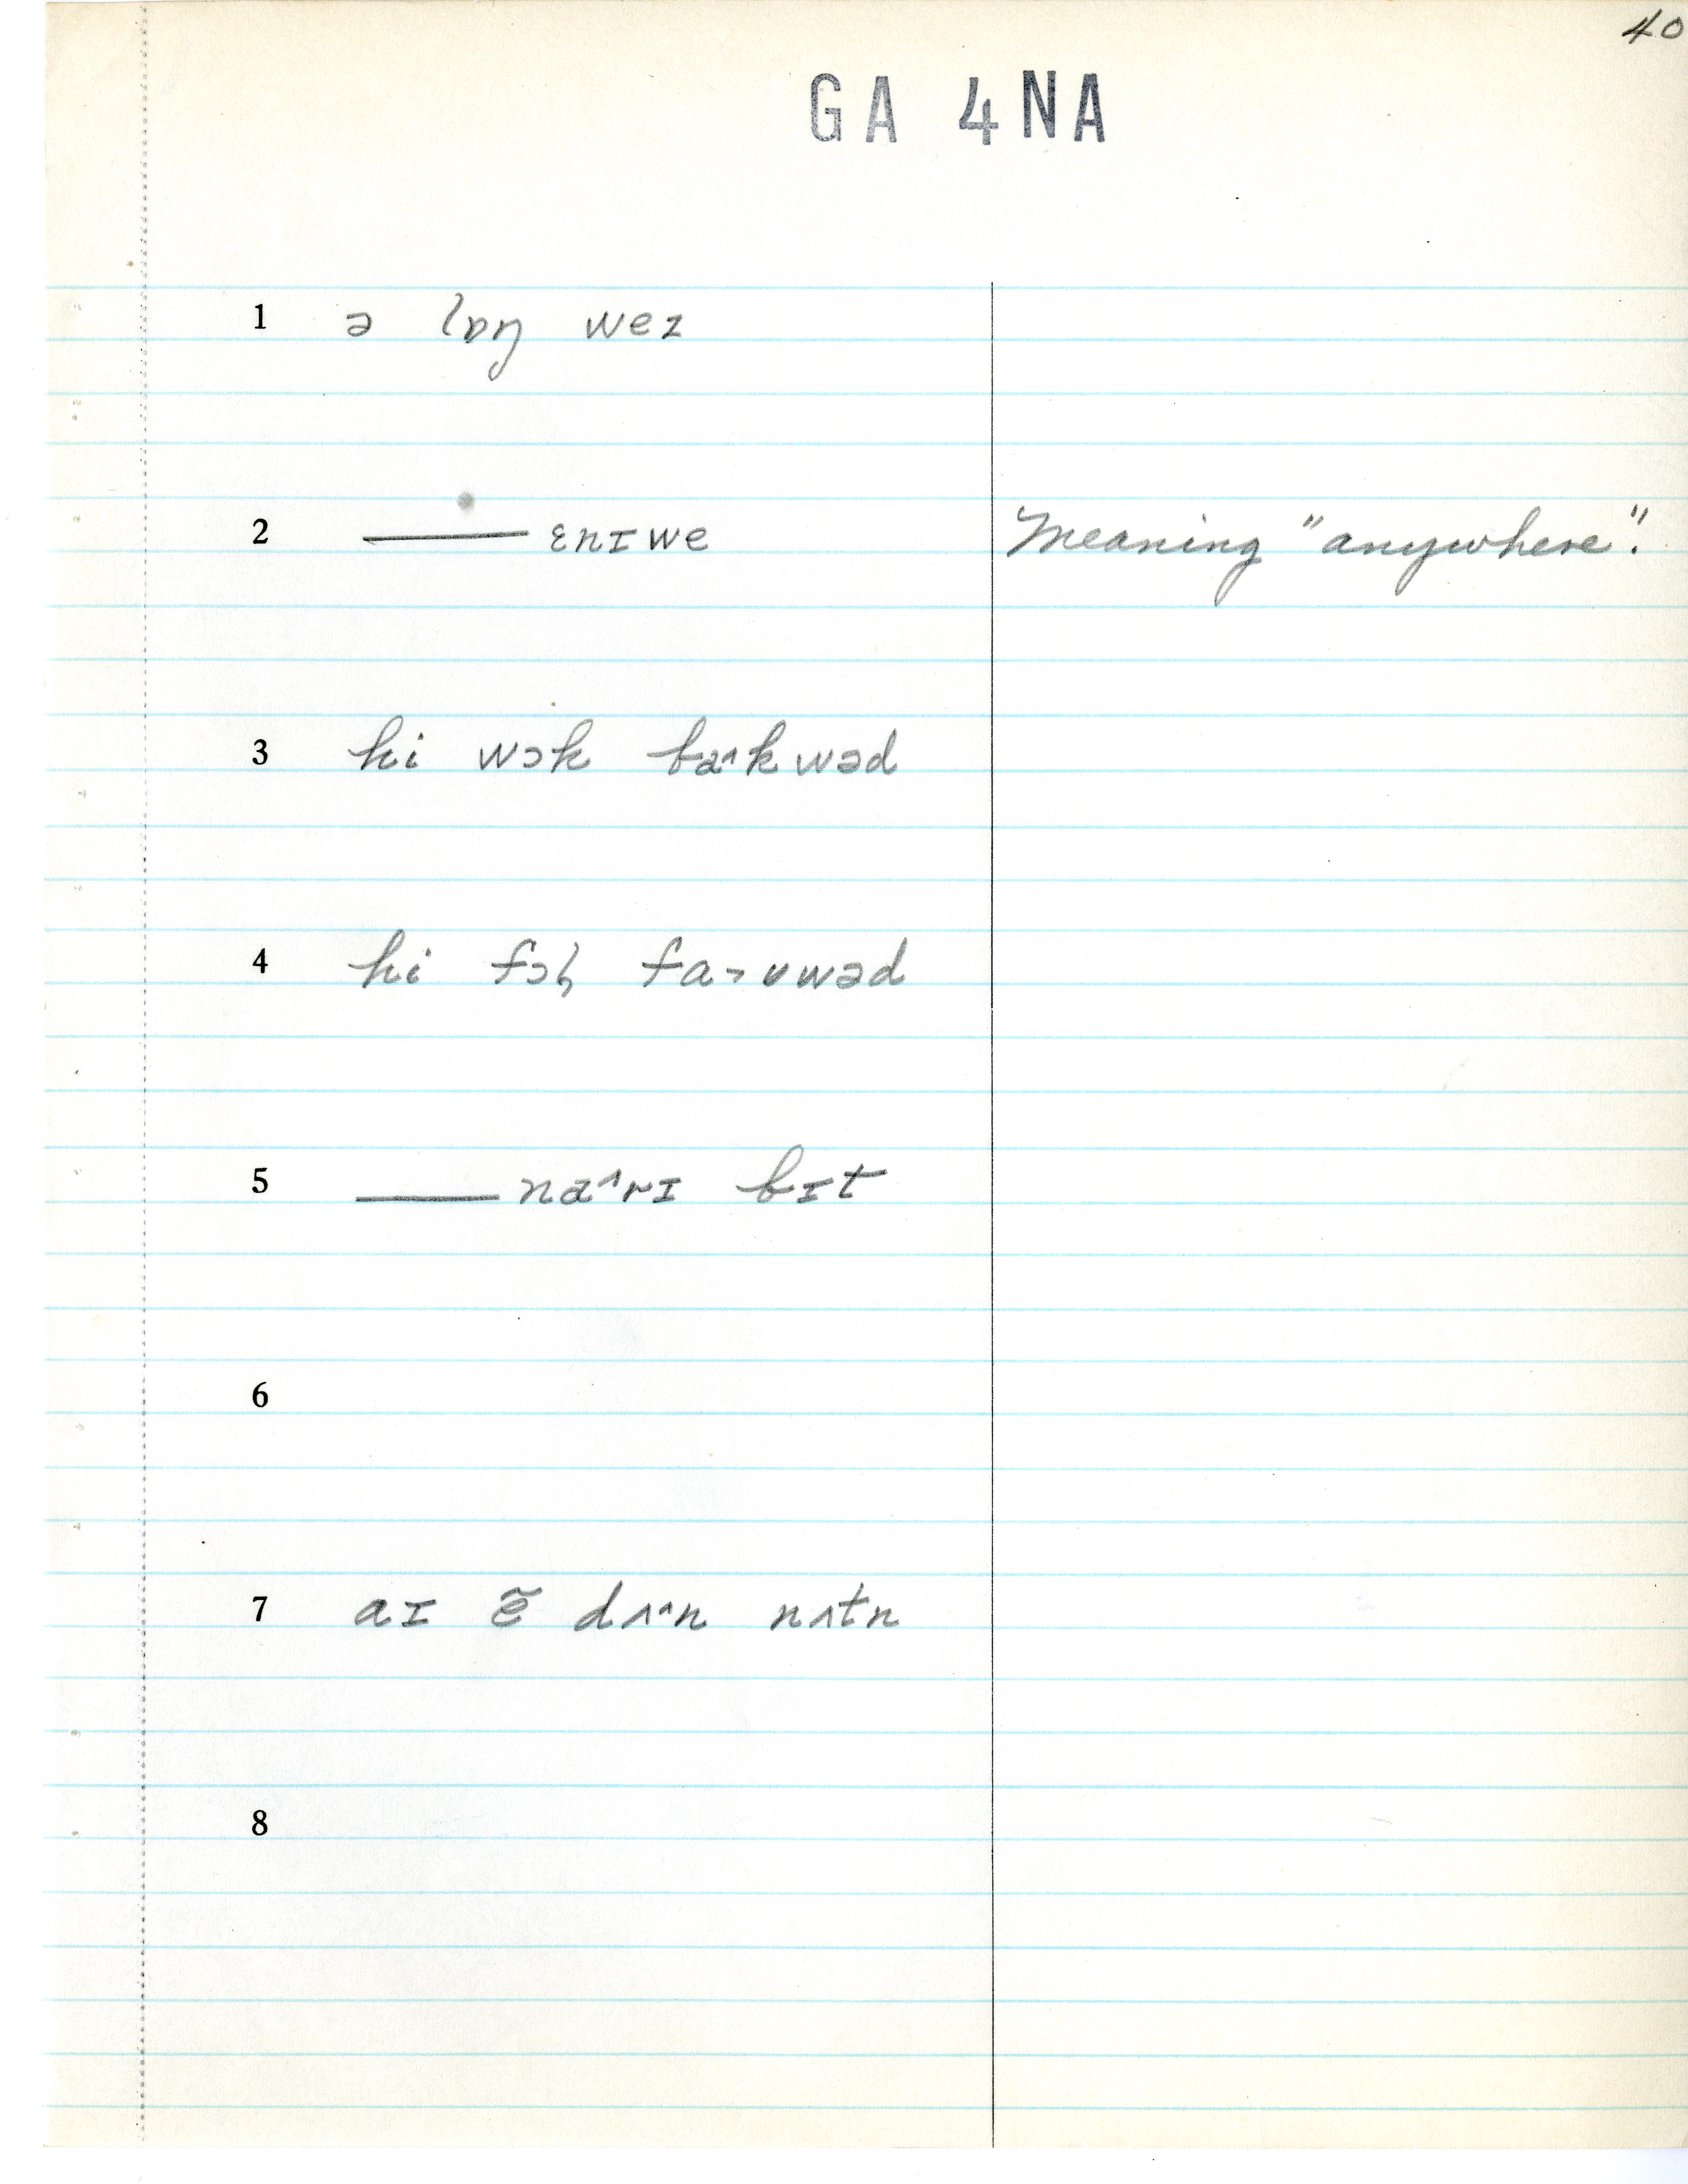 40
GA 4NA
1 ə lɒŋ wez
2 —— ɛnɪwe Meaning "anywhere".
3 hi wɔk ba˄kwəd
4 hi fɔɫ fa˃ʊwəd
5 —— na˄rɪ bɪt
6
7 aɪ ẽ dʌ˄n nʌtn
8